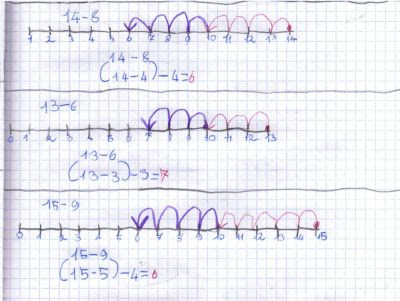 14-8
1 2 3 4 5 6 7 8 9 10 11 12 13 14
14-8
(14-4)-4=6
13-6
0 1 2 3 4 5 6 7 8 9 10 11 12 13
13-6
(13-3)-3=7
15-9
0 1 2 3 4 5 6 7 8 9 10 11 12 13 14 15
15-9
(15-5)-4=6